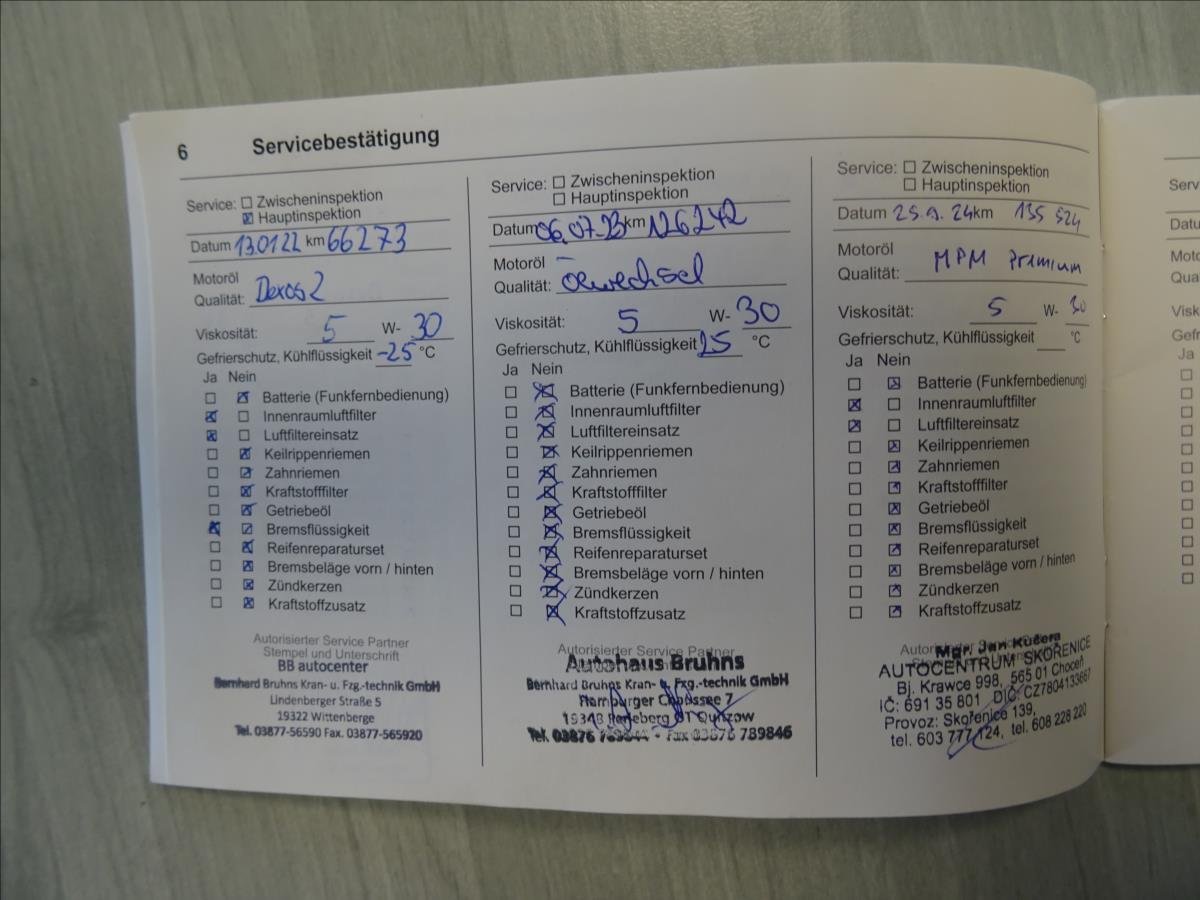 6 Servicebestätigung
Service: Zwischeninspektion
Hauptinspektion
Datum 13.01.22 km 66273
Motoröl
Qualität: Dexos 2
Viskosität: 5 W- 30
Gefrierschutz, Kühlflüssigkeit -25 °C
Ja Nein
Batterie (Funkfernbedienung)
Innenraumluftfilter
Luftfiltereinsatz
Keilrippenriemen
Zahnriemen
Kraftstofffilter
Getriebeöl
Bremsflüssigkeit
Reifenreparaturset
Bremsbeläge vorn / hinten
Zündkerzen
Kraftstoffzusatz
Autorisierter Service Partner
Stempel und Unterschrift
BB autocenter
Bernhard Bruhns Kran- u. Fzg.-technik GmbH
Lindenberger Straße 5
19322 Wittenberge
Tel. 03877-56590 Fax. 03877-565920
Service: Zwischeninspektion
Hauptinspektion
Datum 06.07.23 km 126242
Motoröl
Qualität: Oelwechsel
Viskosität: 5 W- 30
Gefrierschutz, Kühlflüssigkeit 25 °C
Ja Nein
Batterie (Funkfernbedienung)
Innenraumluftfilter
Luftfiltereinsatz
Keilrippenriemen
Zahnriemen
Kraftstofffilter
Getriebeöl
Bremsflüssigkeit
Reifenreparaturset
Bremsbeläge vorn / hinten
Zündkerzen
Kraftstoffzusatz
Autorisierter Service Partner
Autohaus Bruhns
Bernhard Bruhns Kran- u. Fzg.-technik GmbH
Hamburger Chaussee 7
19348 Perleberg OT Quitzow
Tel. 03876 - Fax 03876 789846
Service: Zwischeninspektion
Hauptinspektion
Datum 25.9.24 km 135 524
Motoröl
Qualität: MPM Premium
Viskosität: 5 W- 30
Gefrierschutz, Kühlflüssigkeit °C
Ja Nein
Batterie (Funkfernbedienung)
Innenraumluftfilter
Luftfiltereinsatz
Keilrippenriemen
Zahnriemen
Kraftstofffilter
Getriebeöl
Bremsflüssigkeit
Reifenreparaturset
Bremsbeläge vorn / hinten
Zündkerzen
Kraftstoffzusatz
Mgr. Jan Kučera
AUTOCENTRUM SKOŘENICE
Bj. Krawce 998, 565 01 Choceň
IČ: 691 35 801 DIČ: CZ7804133667
Provoz: Skořenice 139,
tel. 603 777 124, tel. 608 228 220